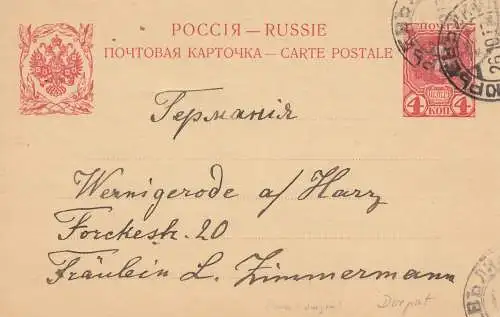 РОССІЯ — RUSSIE
ПОЧТОВАЯ КАРТОЧКА — CARTE POSTALE
4 КОП 4
Германія
Wernigerode a/ Harz
Forckestr. 20
Fräulein L. Zimmermann
Dorpat